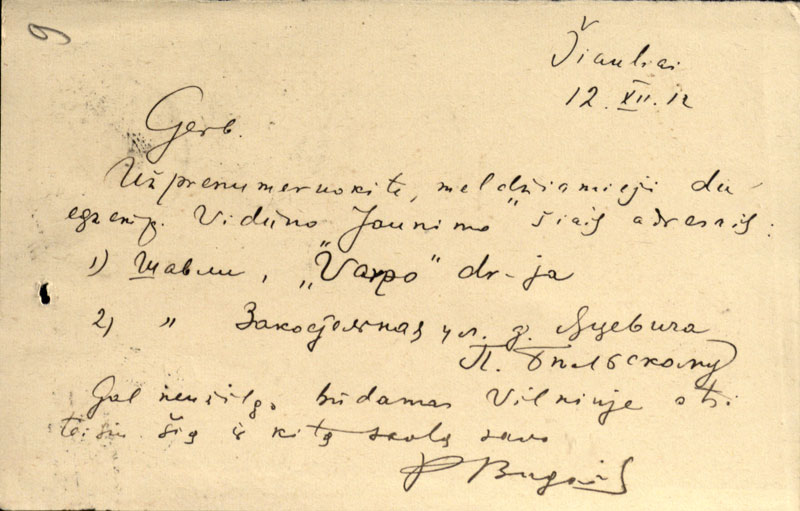 9
Šiauliai
12.XII.12
Gerb.
Užprenumeruokite, meldžiamieji du
egzemp. Vidūno Jaunimo" šiais adresais:
1) Шавли, „Varpo" dr-ja
2) " Закостельная ул. д. Яцевича
П. Бѣльскому
Gal neužilgo būdamas Vilniuje ati-
teisiu šią ir kitą skolą savo
P Bugailiš